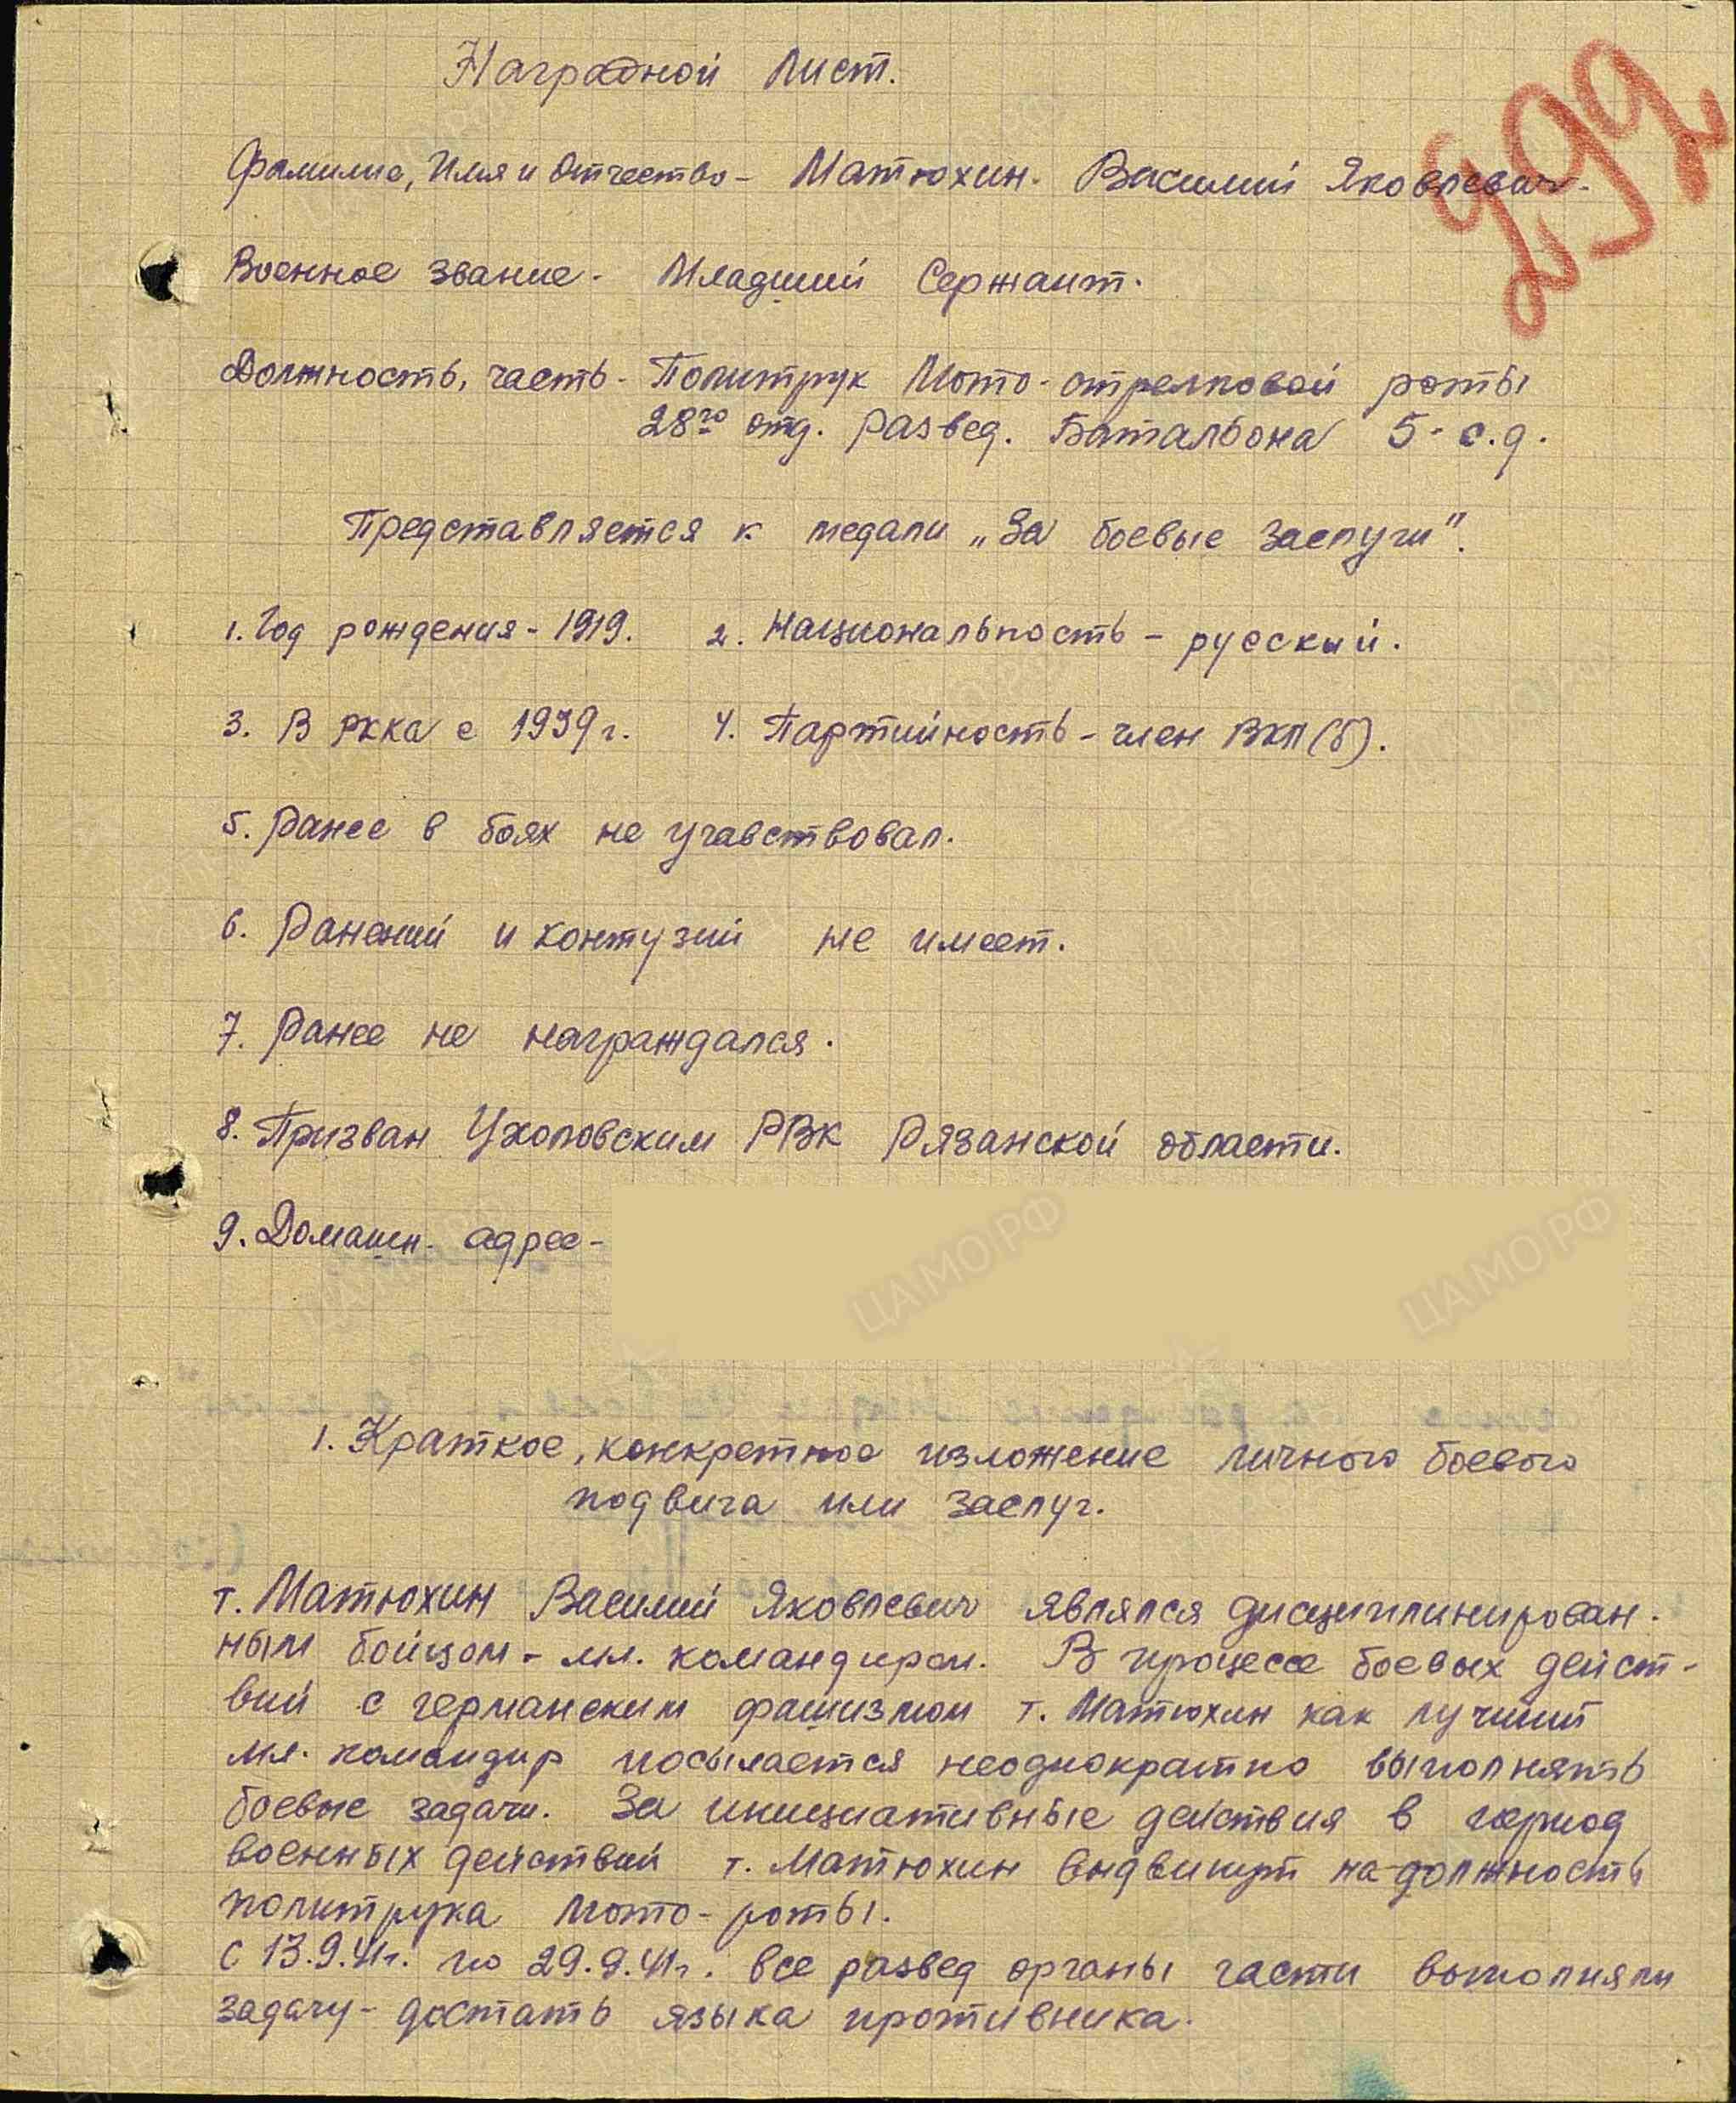 299
Наградной Лист.
Фамилие, Имя и Отчество - Матюхин. Василий Яковлевич.
Военное звание - Младший Сержант.
Должность, часть - Политрук Мото-стрелковой роты
28го отд. развед. Батальона 5-с.д.
Представляется к медали „За боевые заслуги".
1. Год рождения - 1919. 2. Национальность - русский.
3. В РККА с 1939 г. 4. Партийность - член ВКП(б).
5. Ранее в боях не учавствовал.
6. Ранений и контузий не имеет.
7. Ранее не награждался.
8. Призван Ухоловским РВК Рязанской области.
9. Домашн. адрес -
ЦАМО.РФ ЦАМО.РФ ЦАМО.РФ
1. Краткое, конкретное изложение личного боевого
подвига или заслуг.
т. Матюхин Василий Яковлевич являлся дисциплинирован-
ным бойцом - мл. командиром. В процессе боевых дейст-
вий с германским фашизмом т. Матюхин как лучший
мл. командир посылается неоднократно выполнять
боевые задачи. За инициативные действия в период
военных действий т. Матюхин выдвинут на должность
политрука мото-роты.
С 13.9.41г. по 29.9.41г. все развед органы части выполняли
задачу - достать языка противника.